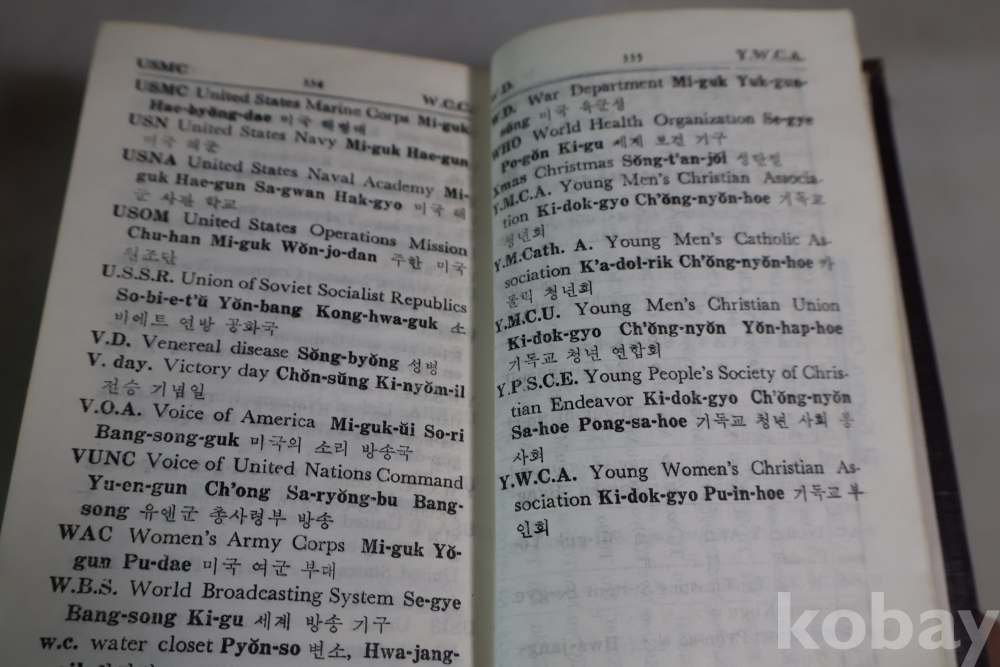 USMC 334 W.C.
USMC United States Marine Corps Mi-guk
Hae-byŏng-dae 미국 해병대
USN United States Navy Mi-guk Hae-gun
미국 해군
USNA United States Naval Academy Mi-
guk Hae-gun Sa-gwan Hak-gyo 미국 해
군 사관 학교
USOM United States Operations Mission
Chu-han Mi-guk Wŏn-jo-dan 주한 미국
원조단
U.S.S.R. Union of Soviet Socialist Republics
So-bi-e-t'ŭ Yŏn-bang Kong-hwa-guk 소
비에트 연방 공화국
V.D. Venereal disease Sŏng-byŏng 성병
V. day. Victory day Chŏn-sŭng Ki-nyŏm-il
전승 기념일
V.O.A. Voice of America Mi-guk-ŭi So-ri
Bang-song-guk 미국의 소리 방송국
VUNC Voice of United Nations Command
Yu-en-gun Ch'ong Sa-ryŏng-bu Bang-
song 유엔군 총사령부 방송
WAC Women's Army Corps Mi-guk Yŏ-
gun Pu-dae 미국 여군 부대
W.B.S. World Broadcasting System Se-gye
Bang-song Ki-gu 세계 방송 기구
w.c. water closet Pyŏn-so 변소, Hwa-jang-
335 Y.W.C.A.
W.D. War Department Mi-guk Yuk-gun-
sŏng 미국 육군성
WHO World Health Organization Se-gye
Po-gŏn Ki-gu 세계 보건 기구
Xmas Christmas Sŏng-t'an-jŏl 성탄절
Y.M.C.A. Young Men's Christian Associa-
tion Ki-dok-gyo Ch'ŏng-nyŏn-hoe 기독교
청년회
Y.M.Cath. A. Young Men's Catholic As-
sociation K'a-dol-rik Ch'ŏng-nyŏn-hoe 카
돌릭 청년회
Y.M.C.U. Young Men's Christian Union
Ki-dok-gyo Ch'ŏng-nyŏn Yŏn-hap-hoe
기독교 청년 연합회
Y.P.S.C.E. Young People's Society of Chris-
tian Endeavor Ki-dok-gyo Ch'ŏng-nyŏn
Sa-hoe Pong-sa-hoe 기독교 청년 사회 봉
사회
Y.W.C.A. Young Women's Christian As-
sociation Ki-dok-gyo Pu-in-hoe 기독교 부
인회
kobay